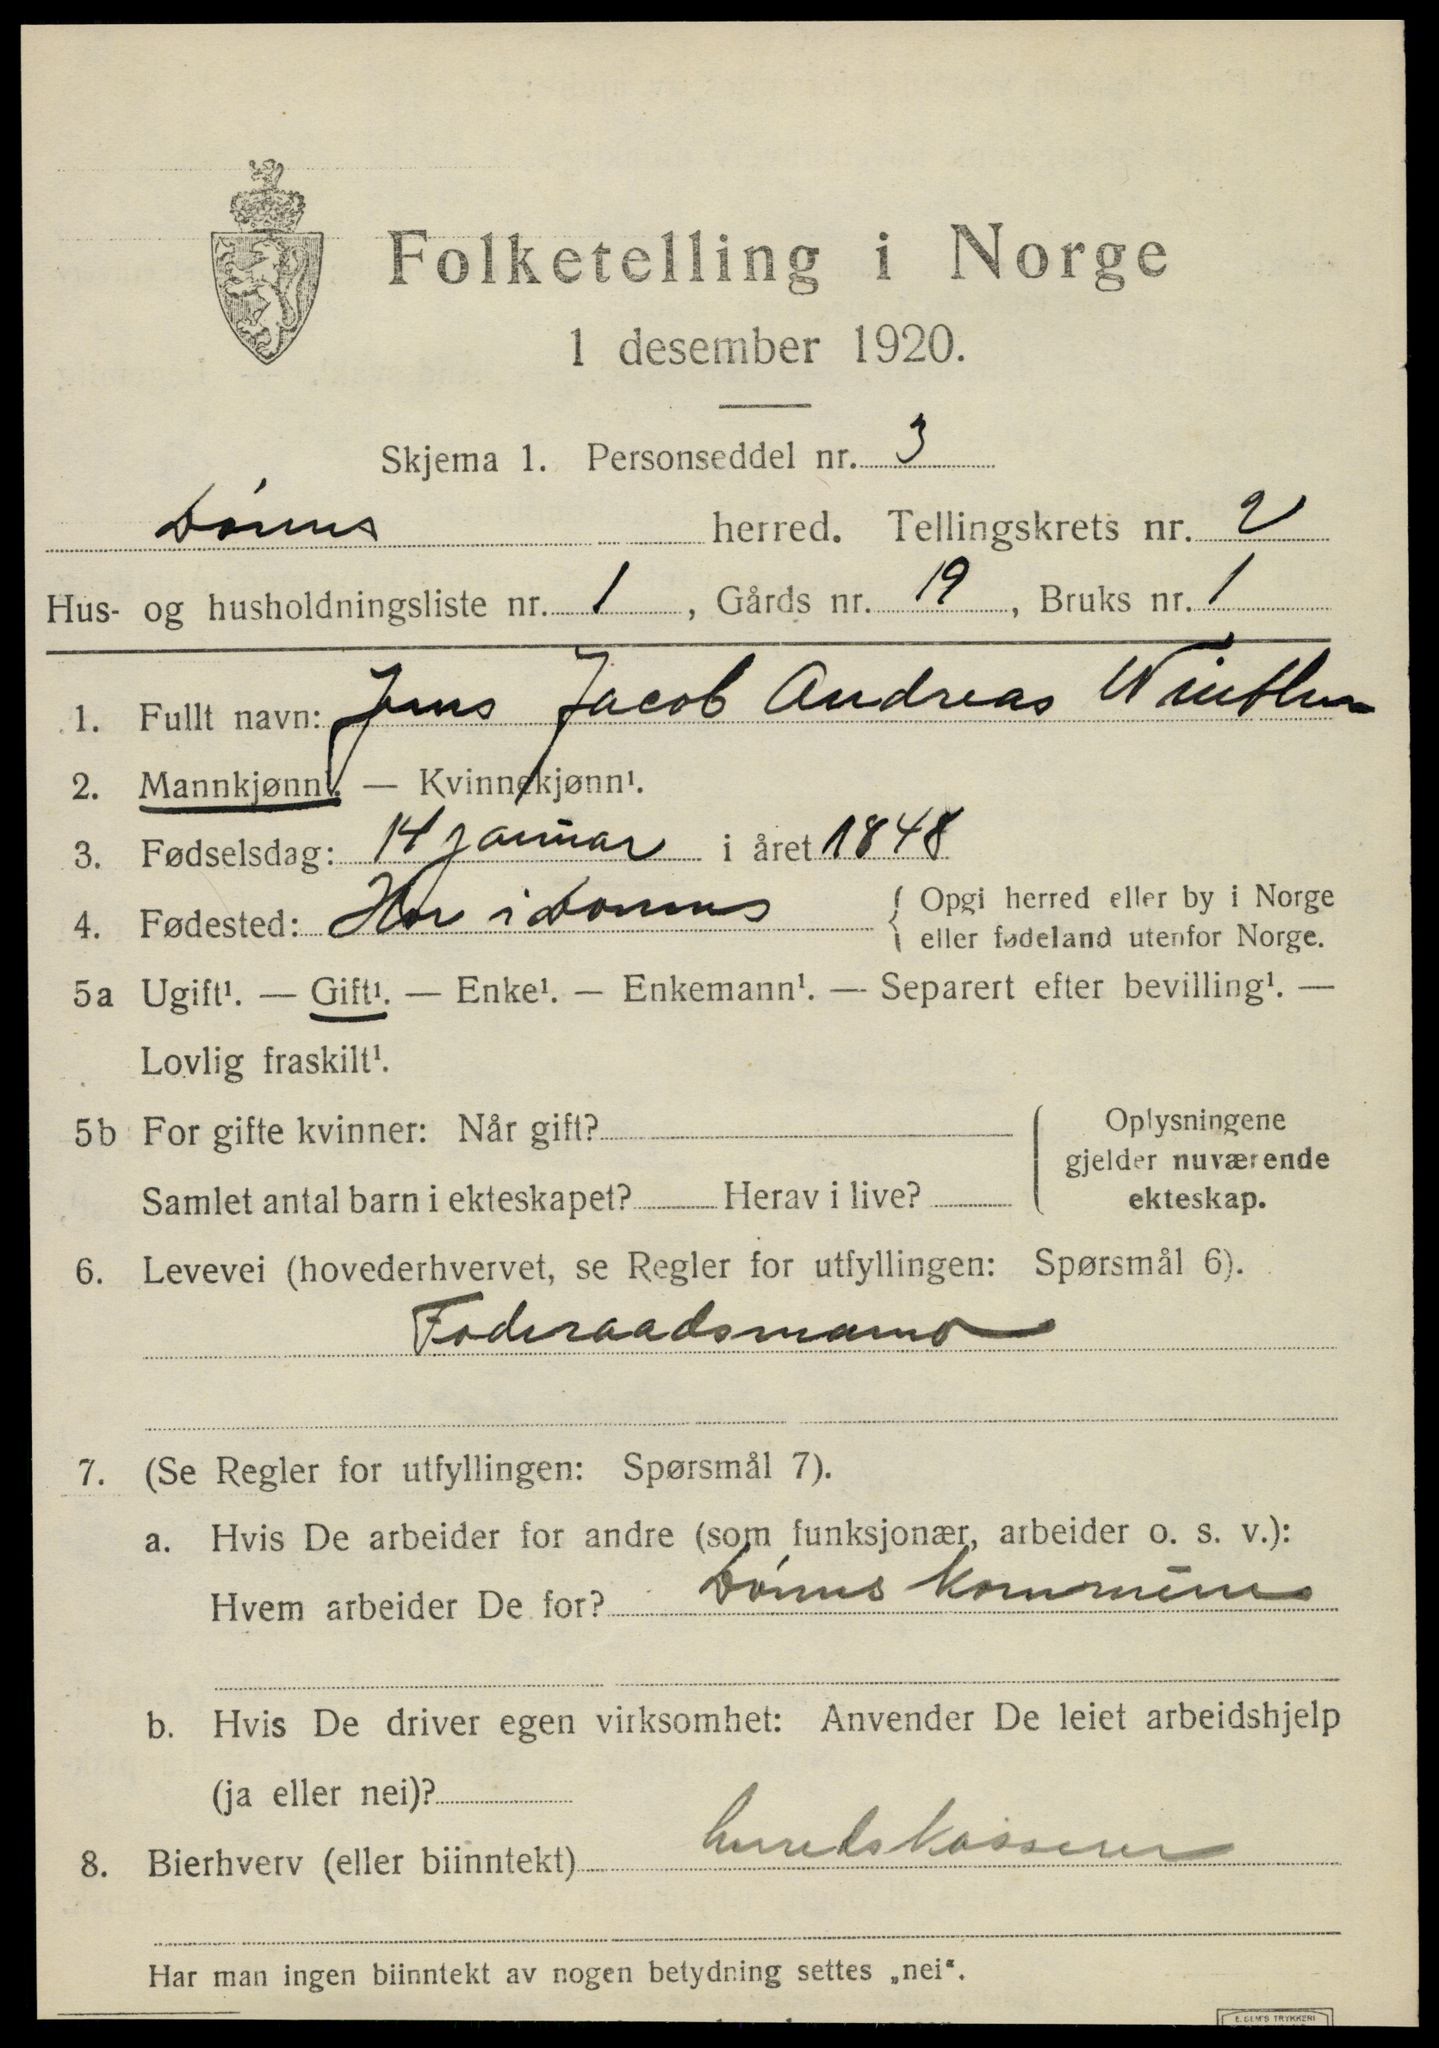 Folketelling i Norge
1 desember 1920.
Skjema 1. Personseddel nr. 3
Dønnes herred. Tellingskrets nr. 2
Hus- og husholdningsliste nr. 1, Gårds nr. 19, Bruks nr. 1
1. Fullt navn: Jens Jacob Andreas Winther
2. Mannkjønn¹. — Kvinnekjønn¹.
3. Fødselsdag: 14 januar i året 1848
4. Fødested: Her i Dønnes { Opgi herred eller by i Norge
eller fødeland utenfor Norge.
5a Ugift¹. — Gift¹. — Enke¹. — Enkemann¹. — Separert efter bevilling¹. —
Lovlig fraskilt¹.
5b For gifte kvinner: Når gift?
Samlet antal barn i ekteskapet? Herav i live?
Oplysningene
gjelder nuværende
ekteskap.
6. Levevei (hovederhvervet, se Regler for utfyllingen: Spørsmål 6).
Føderaadsmand
7. (Se Regler for utfyllingen: Spørsmål 7).
a. Hvis De arbeider for andre (som funksjonær, arbeider o. s. v.):
Hvem arbeider De for? Dønnes kommune
b. Hvis De driver egen virksomhet: Anvender De leiet arbeidshjelp
(ja eller nei)?
8. Bierhverv (eller biinntekt) herredskasserer
Har man ingen biinntekt av nogen betydning settes „nei“.